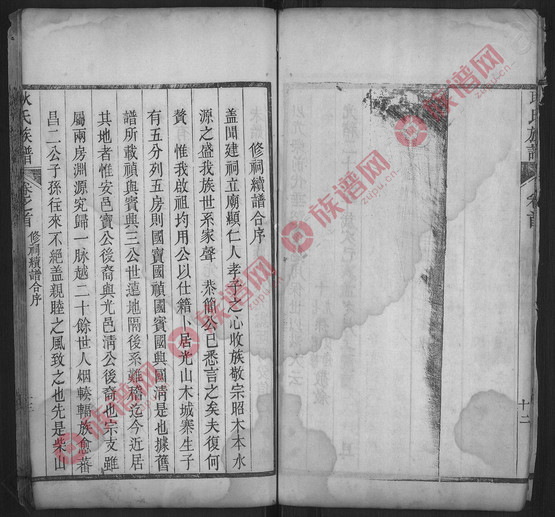 氏族譜
卷首
十二
修祠續譜合序
蓋聞建祠立廟顯仁人孝子之心收族敬宗昭木本水
源之盛我族世系家聲 恭簡公已悉言之矣夫復何
贅 惟我啟祖均用公以仕籍卜居光山木城寨生子
有五分列五房則國寶國禎國賓國興國清是也據舊
譜所載禎與賓興三公世遠地隔後系難稽迄今近居
其地者惟安邑寶公後裔與光邑清公後裔也宗支雖
屬兩房淵源究歸一脉越二十餘世人烟輳輻族愈蕃
昌二公子孫往來不絕蓋親睦之風致之也先是柴山
耿氏族譜
卷之首
修祠續譜合序
十三
族谱网
www.zupu.cn
族谱网
www.zupu.cn
族谱网
www.zupu.cn